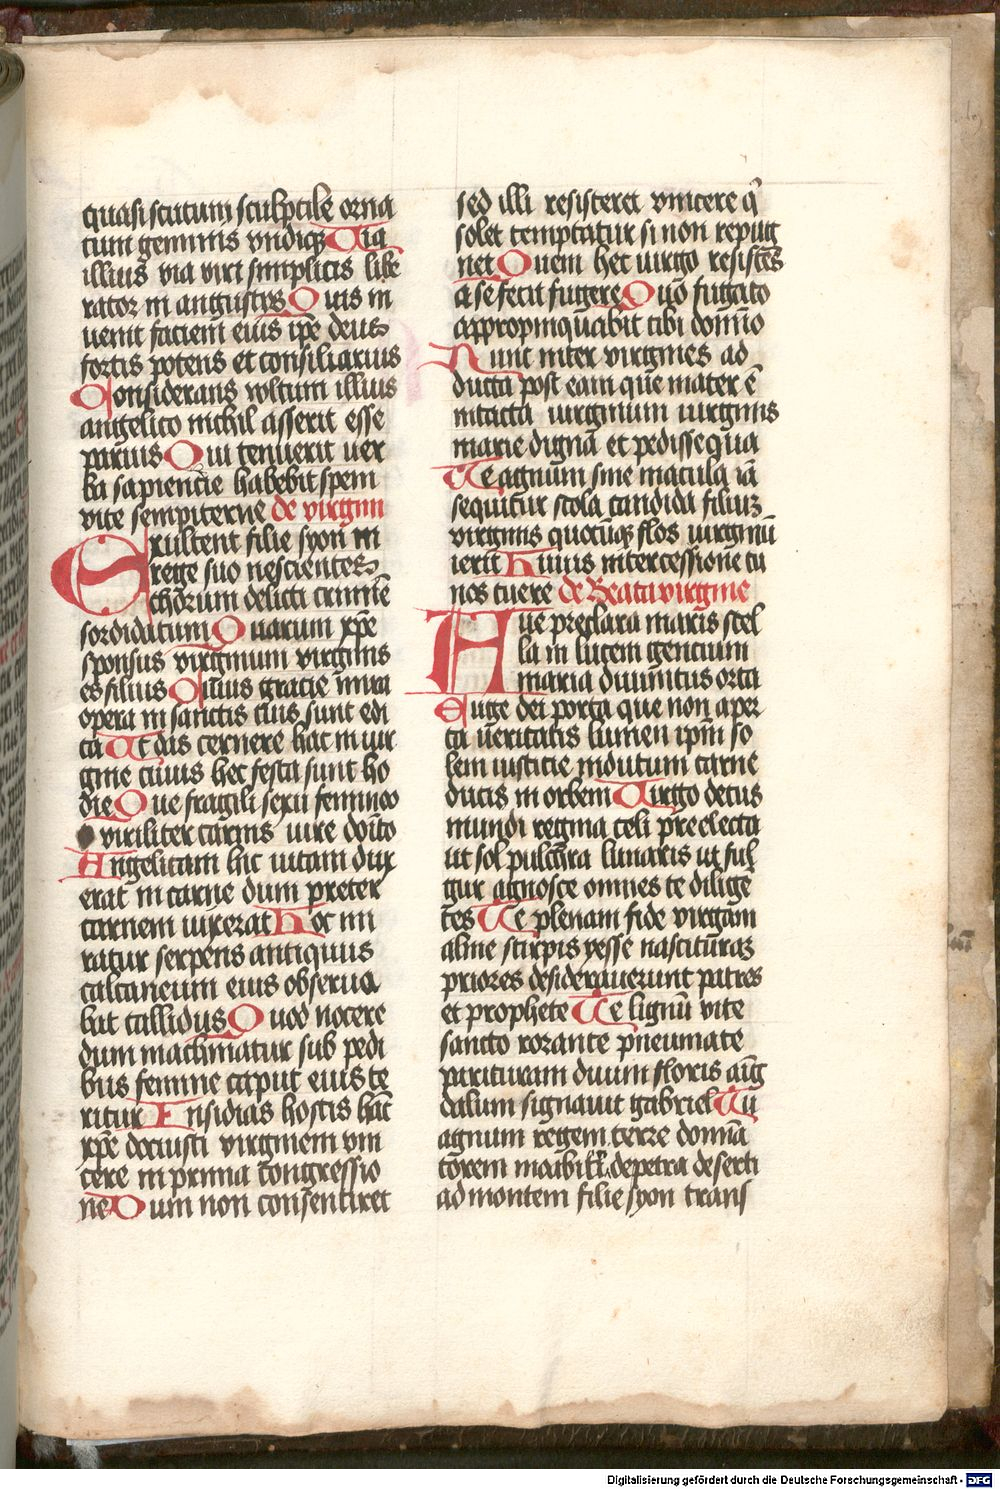 quasi scutum sculptile orna
tum gemmis vndiqꝫ Uia
illius via viri simplicis libe
rator in angustijs Quis in
uenit faciem eius ipē deus
fortis potens et consiliarius
Considerans voltum illius
angelico nichil asserit esse
parius Qui tenuerit uer
ba sapiencie habebit spem
vite sempiterne de virgini
Exultent filie syon in
rege suo nescientes
thorum delicti crimīe
sordidatum Quarum xp̄e
sponsus virginum virginis
es filius Cuius gracie mira
opera in sanctis tuis sunt edi
ta Ut das cernere hac in uir
gine cuius hec festa sunt ho
die Que fragili sexu femineo
viriliter carnis iure doīto
Angelicam hic uitam dux
erat in carne dum preter
carnem uixerat Hoc mi
ratur serpens antiquus
calcaneum eius obserua
bat callidus Quod nocere
dum machinatur sub pedi
bus femine caput eius te
ritur Insidias hostis hāc
xp̄e docuisti virginem vin
cere in prima congressio
ne Dum non consentiret
sed illi resisteret vincere q̄
solet temptatur si non repug
net Quem hec uirgo resistēs
a se fecit fugere Quō fugato
appropinquabit tibi domīo
Nunc inter virgines ad
ducta post eam que mater ē
intacta uirginum uirginis
marie dignā et pedissequa
Te agnum sine macula iā
sequitur stola candida filium
virginis quocūqꝫ flos uirginū
ierit Huius intercessione tu
nos tuere de Beata virgine
Aue preclara maris stel
la in lucem gentium
maria diuinitus orta
Euge dei porta que non aper
ta ūeritatis lumen ipm̄ so
lem iusticie indutum carne
ducis in orbem Uirgo decus
mundi regina celi preelecta
ut sol pulchra lunaris ut ful
gur agnosce omnes te dilige
tes Te plenam fide virgam
alme stirpis yesse nascituram
priores desiderauerunt patres
et prophete Te lignū vite
sancto rorante pneumate
parituram diuini floris amig
dalum signauit gabriel Tu
agnum regem terre domīa
torem moabitī de petra deserti
ad montem filie syon trans
Digitalisierung gefördert durch die Deutsche Forschungsgemeinschaft - DFG